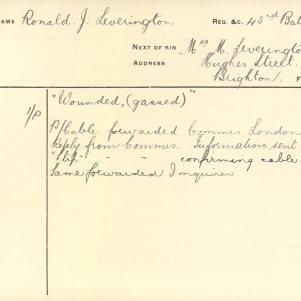 NAME Ronald. J. Leverington REG. &C. 43rd Bat
NEXT OF KIN Mrs M. Leverington
ADDRESS Hughes Street.
Brighton. F
"Wounded, (gassed)"
1/P P/Cable forwarded Commis London
Reply from Commis. Information sent
" " confirming cable
Same forwarded Inquirer